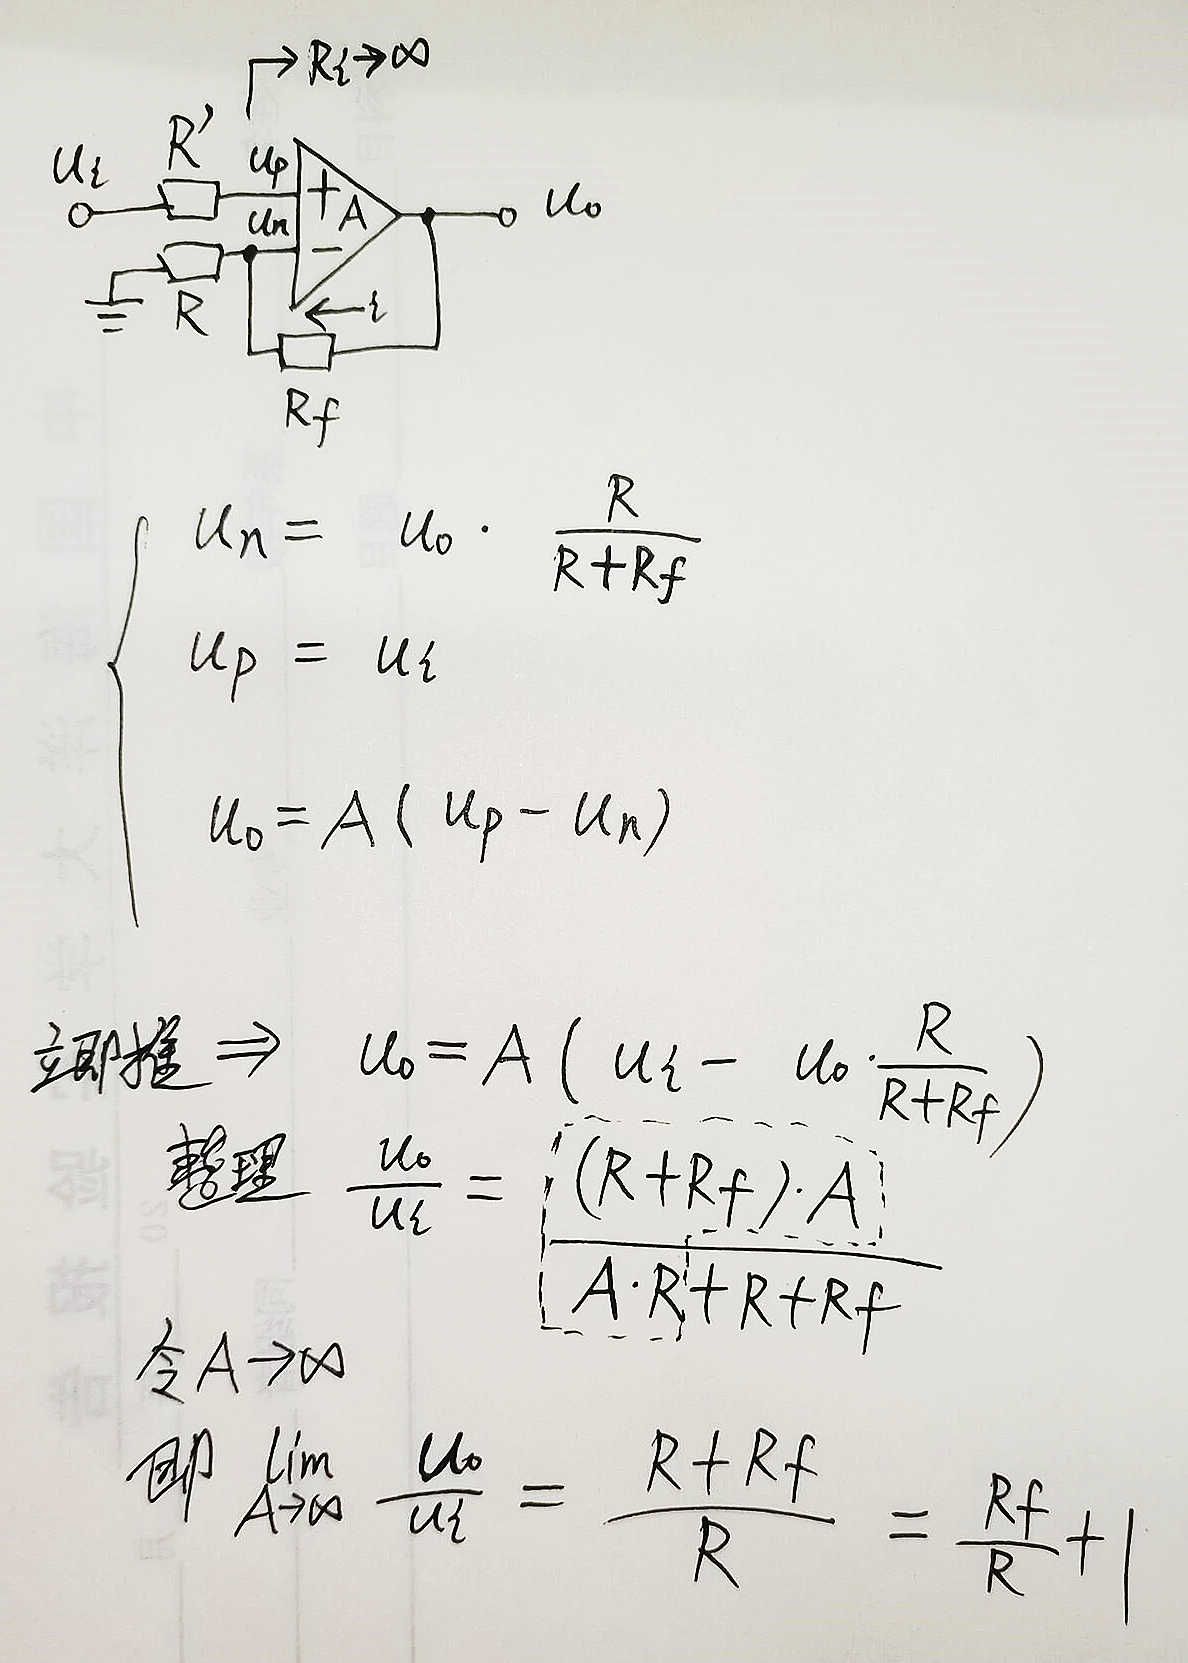 Ri→∞
R'
ui
up
+
A
uo
un
−
R
i
Rf
un = uo · R/(R+Rf)
up = ui
uo = A(up − un)
立即推 ⇒ uo = A(ui − uo · R/(R+Rf))
整理 uo/ui = (R+Rf)·A/(A·R+R+Rf)
令A→∞
即 lim A→∞ uo/ui = (R+Rf)/R = Rf/R + 1